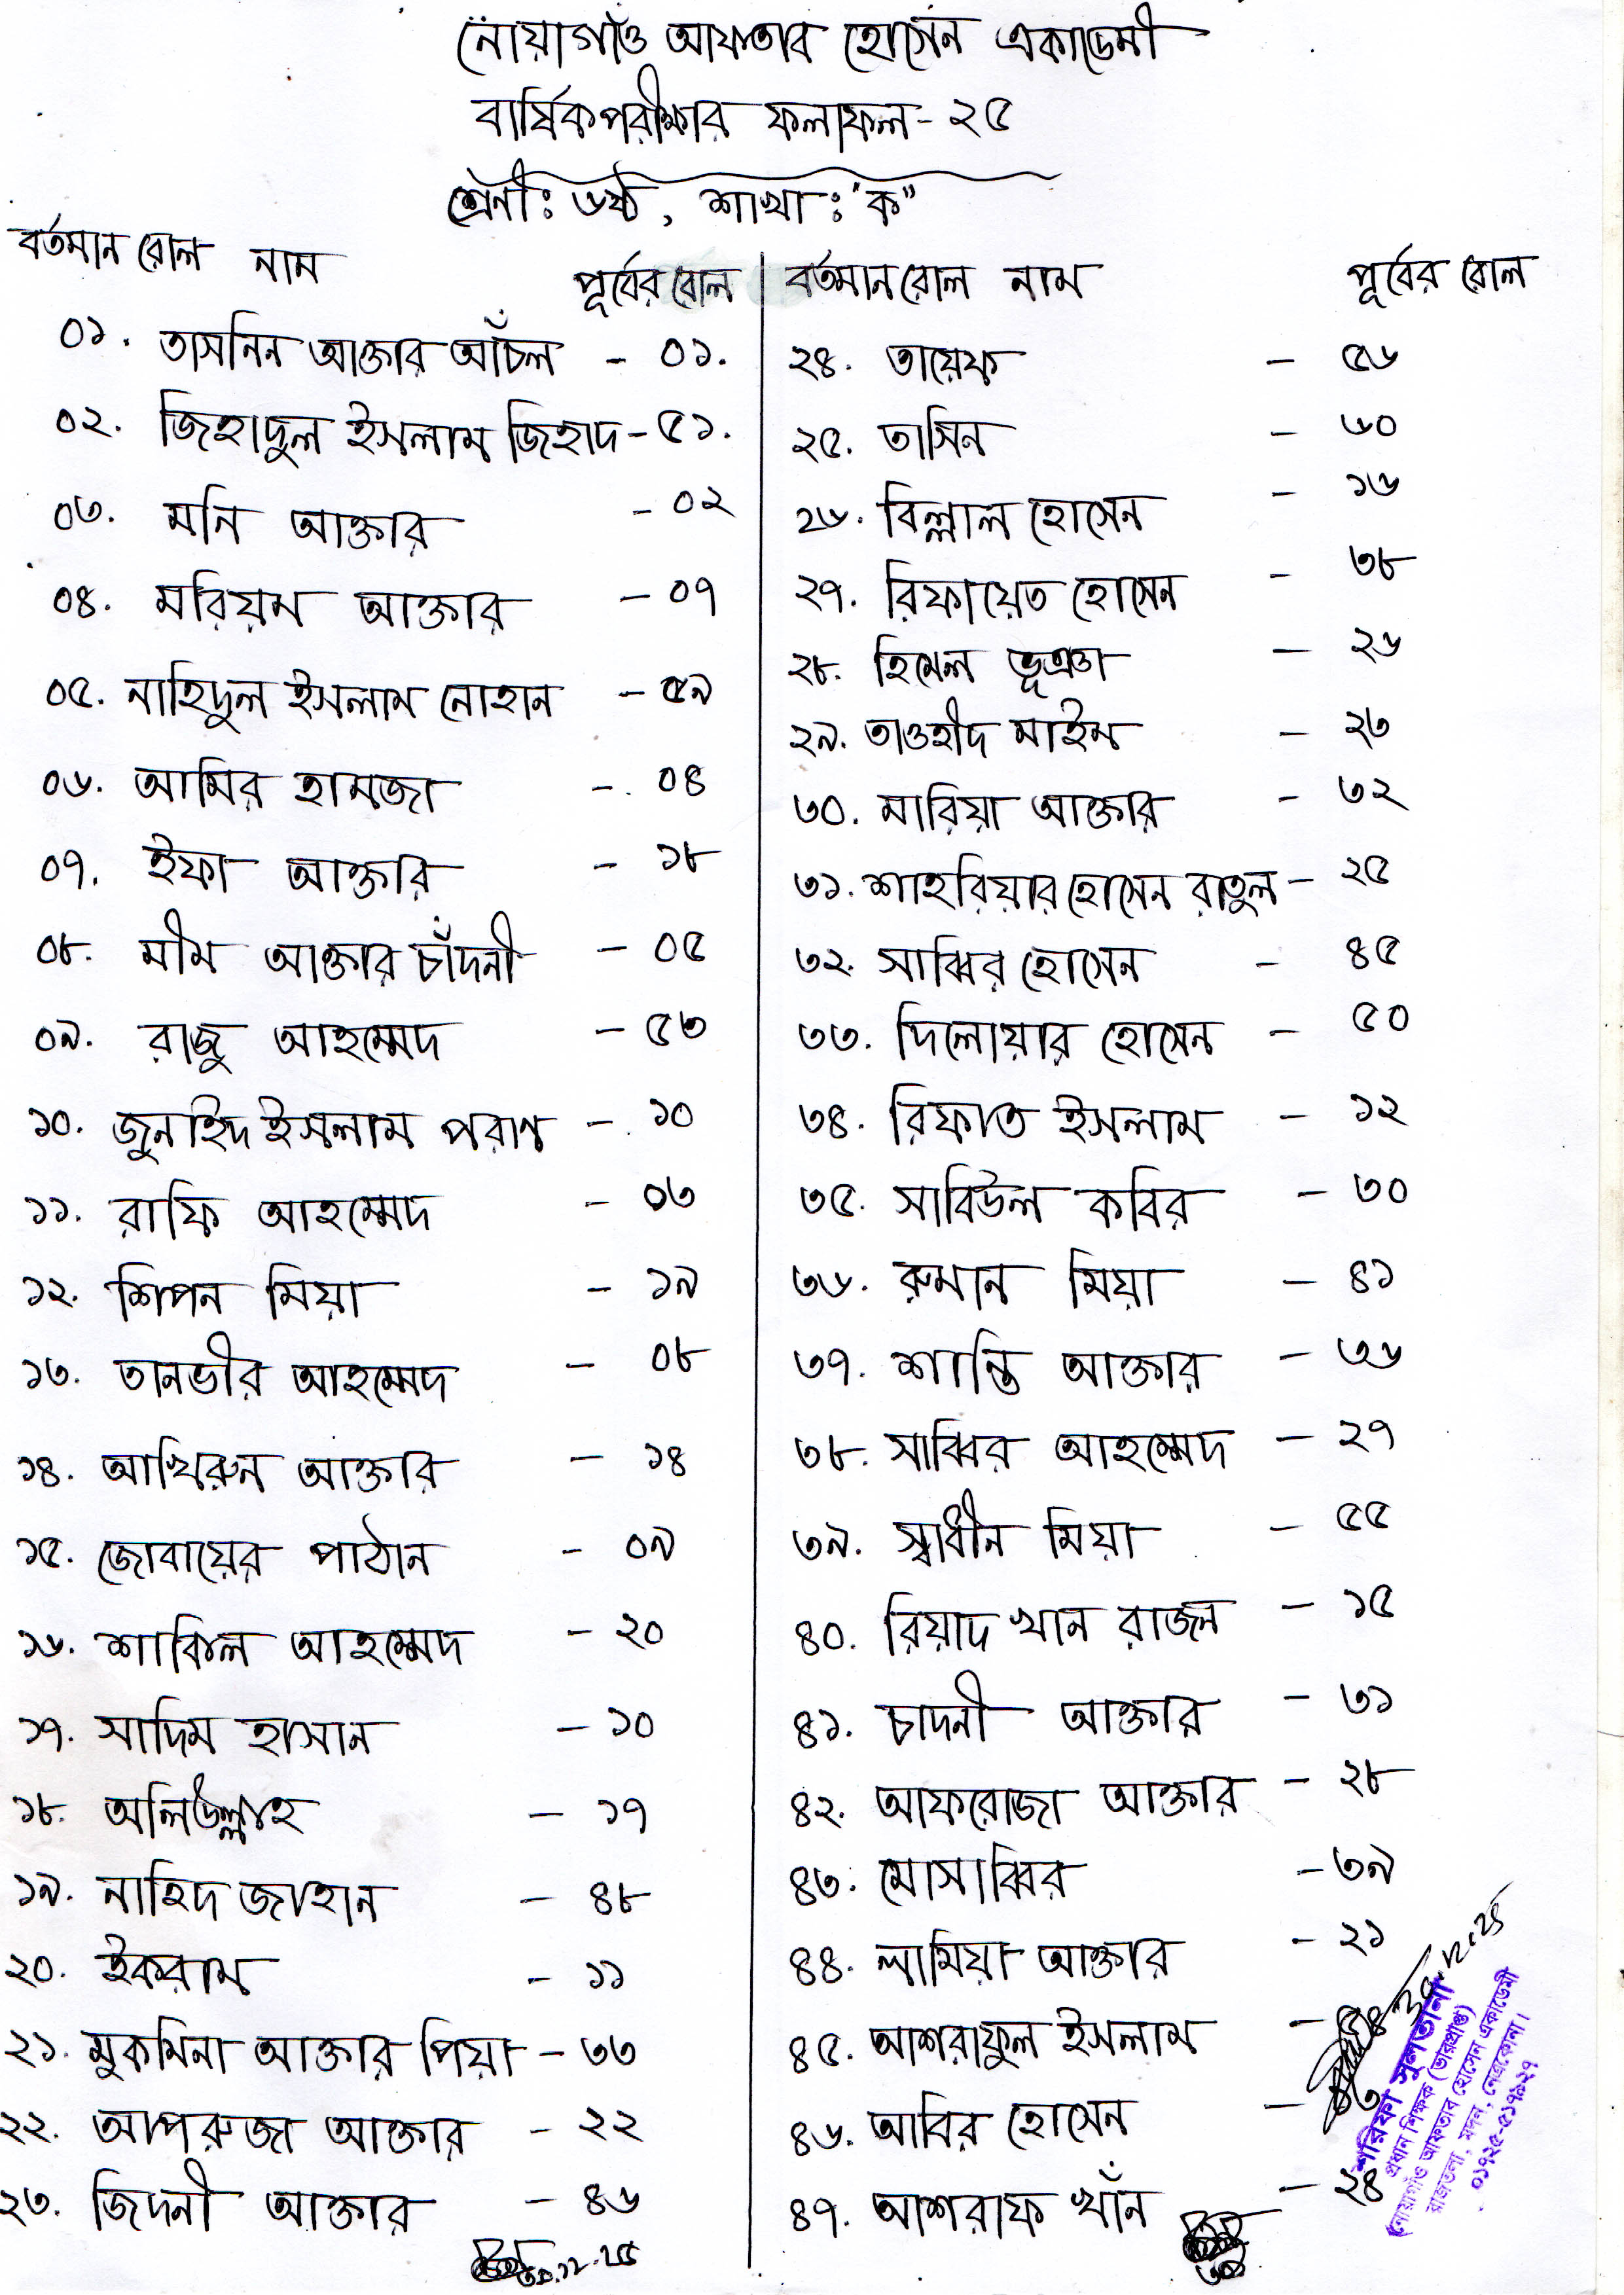 নোয়াগাঁও আফতাব হোসেন একাডেমী
বার্ষিক পরীক্ষার ফলাফল - ২৫
শ্রেণী : ৬ষ্ঠ, শাখা : "ক"
বর্তমান রোল নাম পূর্বের রোল
০১. তাসনিন আক্তার আঁচল - ০১.
০২. জিহাদুল ইসলাম জিহাদ - ৫১.
০৩. মনি আক্তার - ০২
০৪. মরিয়ম আক্তার - ০৭
০৫. নাহিদুল ইসলাম নোহান - ৫৯
০৬. আমির হামজা - ০৪
০৭. ইফা আক্তার - ১৮
০৮. মীম আক্তার চাঁদনী - ০৫
০৯. রাজু আহম্মেদ - ৫৩
১০. জুনাহিদ ইসলাম পরাণ - ১০
১১. রাফি আহম্মেদ - ০৩
১২. শিপন মিয়া - ১৯
১৩. তানভীর আহম্মেদ - ০৮
১৪. আখিরুন আক্তার - ১৪
১৫. জোবায়ের পাঠান - ০৯
১৬. শাকিল আহম্মেদ - ২০
১৭. সাদিম হাসান - ১০
১৮. অলিউল্লাহ - ১৭
১৯. নাহিদ জাহান - ৪৮
২০. ইকরাম - ১১
২১. মুকমিনা আক্তার পিয়া - ৩৩
২২. আপরুজা আক্তার - ২২
২৩. জিদনী আক্তার - ৪৬
৩০.১২.২৫
বর্তমান রোল নাম পূর্বের রোল
২৪. তায়েফ - ৫৬
২৫. তাসিন - ৬০
২৬. বিল্লাল হোসেন - ১৬
২৭. রিফায়েত হোসেন - ৩৮
২৮. হিমেল ভূঞা - ২৬
২৯. তাওহীদ মাইম - ২৩
৩০. মারিয়া আক্তার - ৩২
৩১. শাহরিয়ার হোসেন রাতুল - ২৫
৩২. সাব্বির হোসেন - ৪৫
৩৩. দিলোয়ার হোসেন - ৫০
৩৪. রিফাত ইসলাম - ১২
৩৫. সাবিউল কবির - ৩০
৩৬. রুমান মিয়া - ৪১
৩৭. শান্তি আক্তার - ৩৬
৩৮. সাব্বির আহম্মেদ - ২৭
৩৯. স্বাধীন মিয়া - ৫৫
৪০. রিয়াদ খান রাজন - ১৫
৪১. চাদনী আক্তার - ৩১
৪২. আফরোজা আক্তার - ২৮
৪৩. মোসাব্বির - ৩৯
৪৪. লামিয়া আক্তার - ২১
৪৫. আশরাফুল ইসলাম -
৪৬. আবির হোসেন -
৪৭. আশরাফ খাঁন - ২৪
শরিফা সুলতানা
প্রধান শিক্ষক (ভারপ্রাপ্ত)
নোয়াগাঁও আফতাব হোসেন একাডেমী
রাজতলা, মদন, নেত্রকোনা।